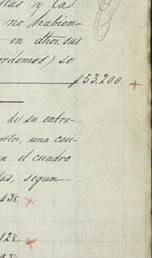 tas y la
no habien-
en dhos. sus
ordomos) se
$53.200. +
de su entre-
una cosi-
n el cuadro
tas, segun
43 c. +
12 c. +